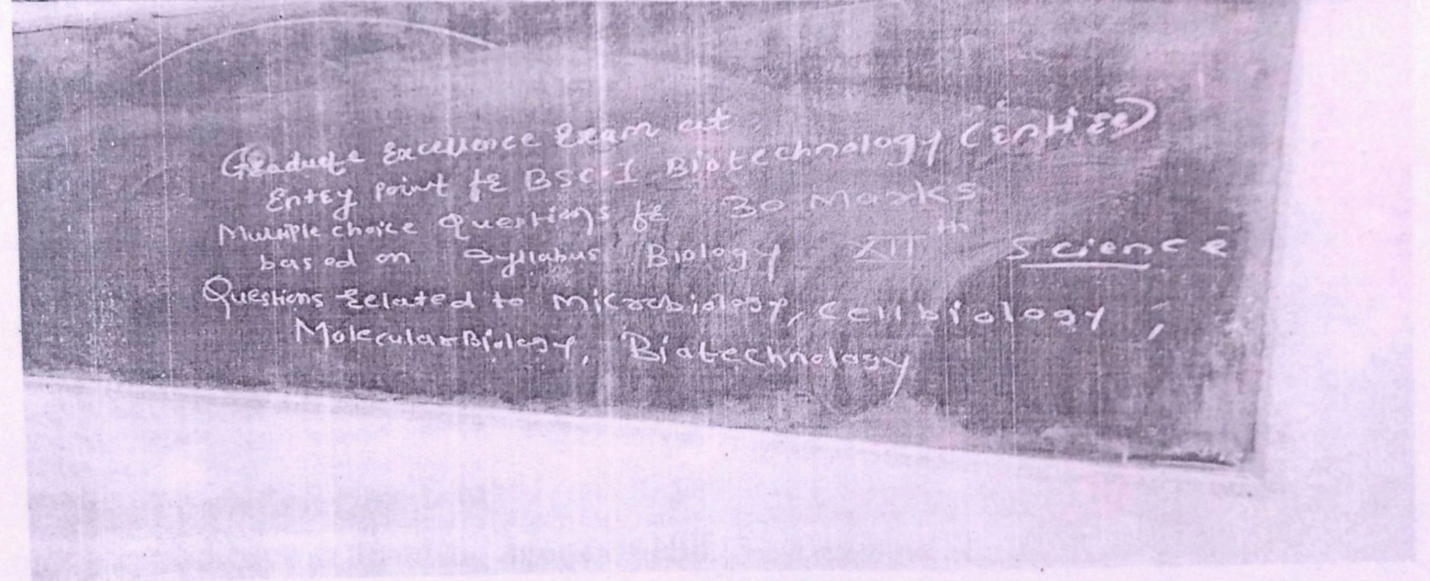 Graduate Excellence Exam at
Entry point for BSC-I Biotechnology (Entire)
Multiple choice Questions for 30 Marks
based on Syllabus Biology XIIth Science
Questions related to Microbiology, Cell biology,
Molecular Biology, Biotechnology